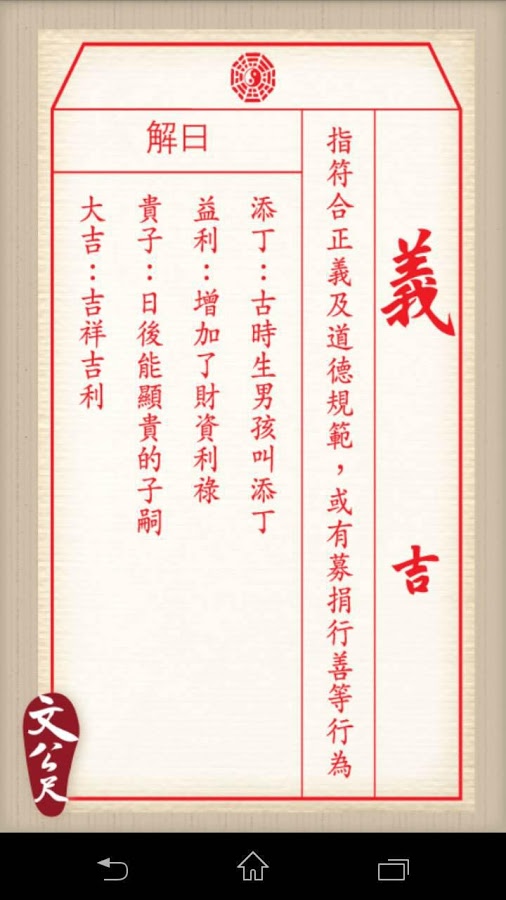 義 吉
指符合正義及道德規範，或有募捐行善等行為
解曰
添丁：古時生男孩叫添丁
益利：增加了財資利祿
貴子：日後能顯貴的子嗣
大吉：吉祥吉利
文公尺